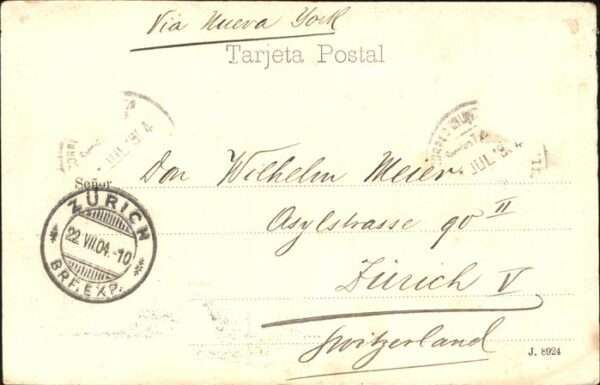 Via Nueva York
Tarjeta Postal
JUL
JUL
Señor
Don Wilhelm Meier.
Asylstrasse 90 II
Zürich V
Switzerland
ZÜRICH
22.VII.04.-10
BRF.EXP.
J. 8924